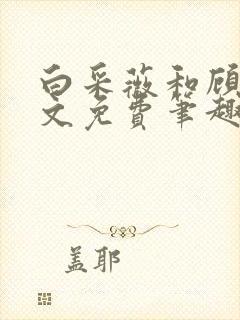 白采薇和顾
文免费笔趣
盖耶